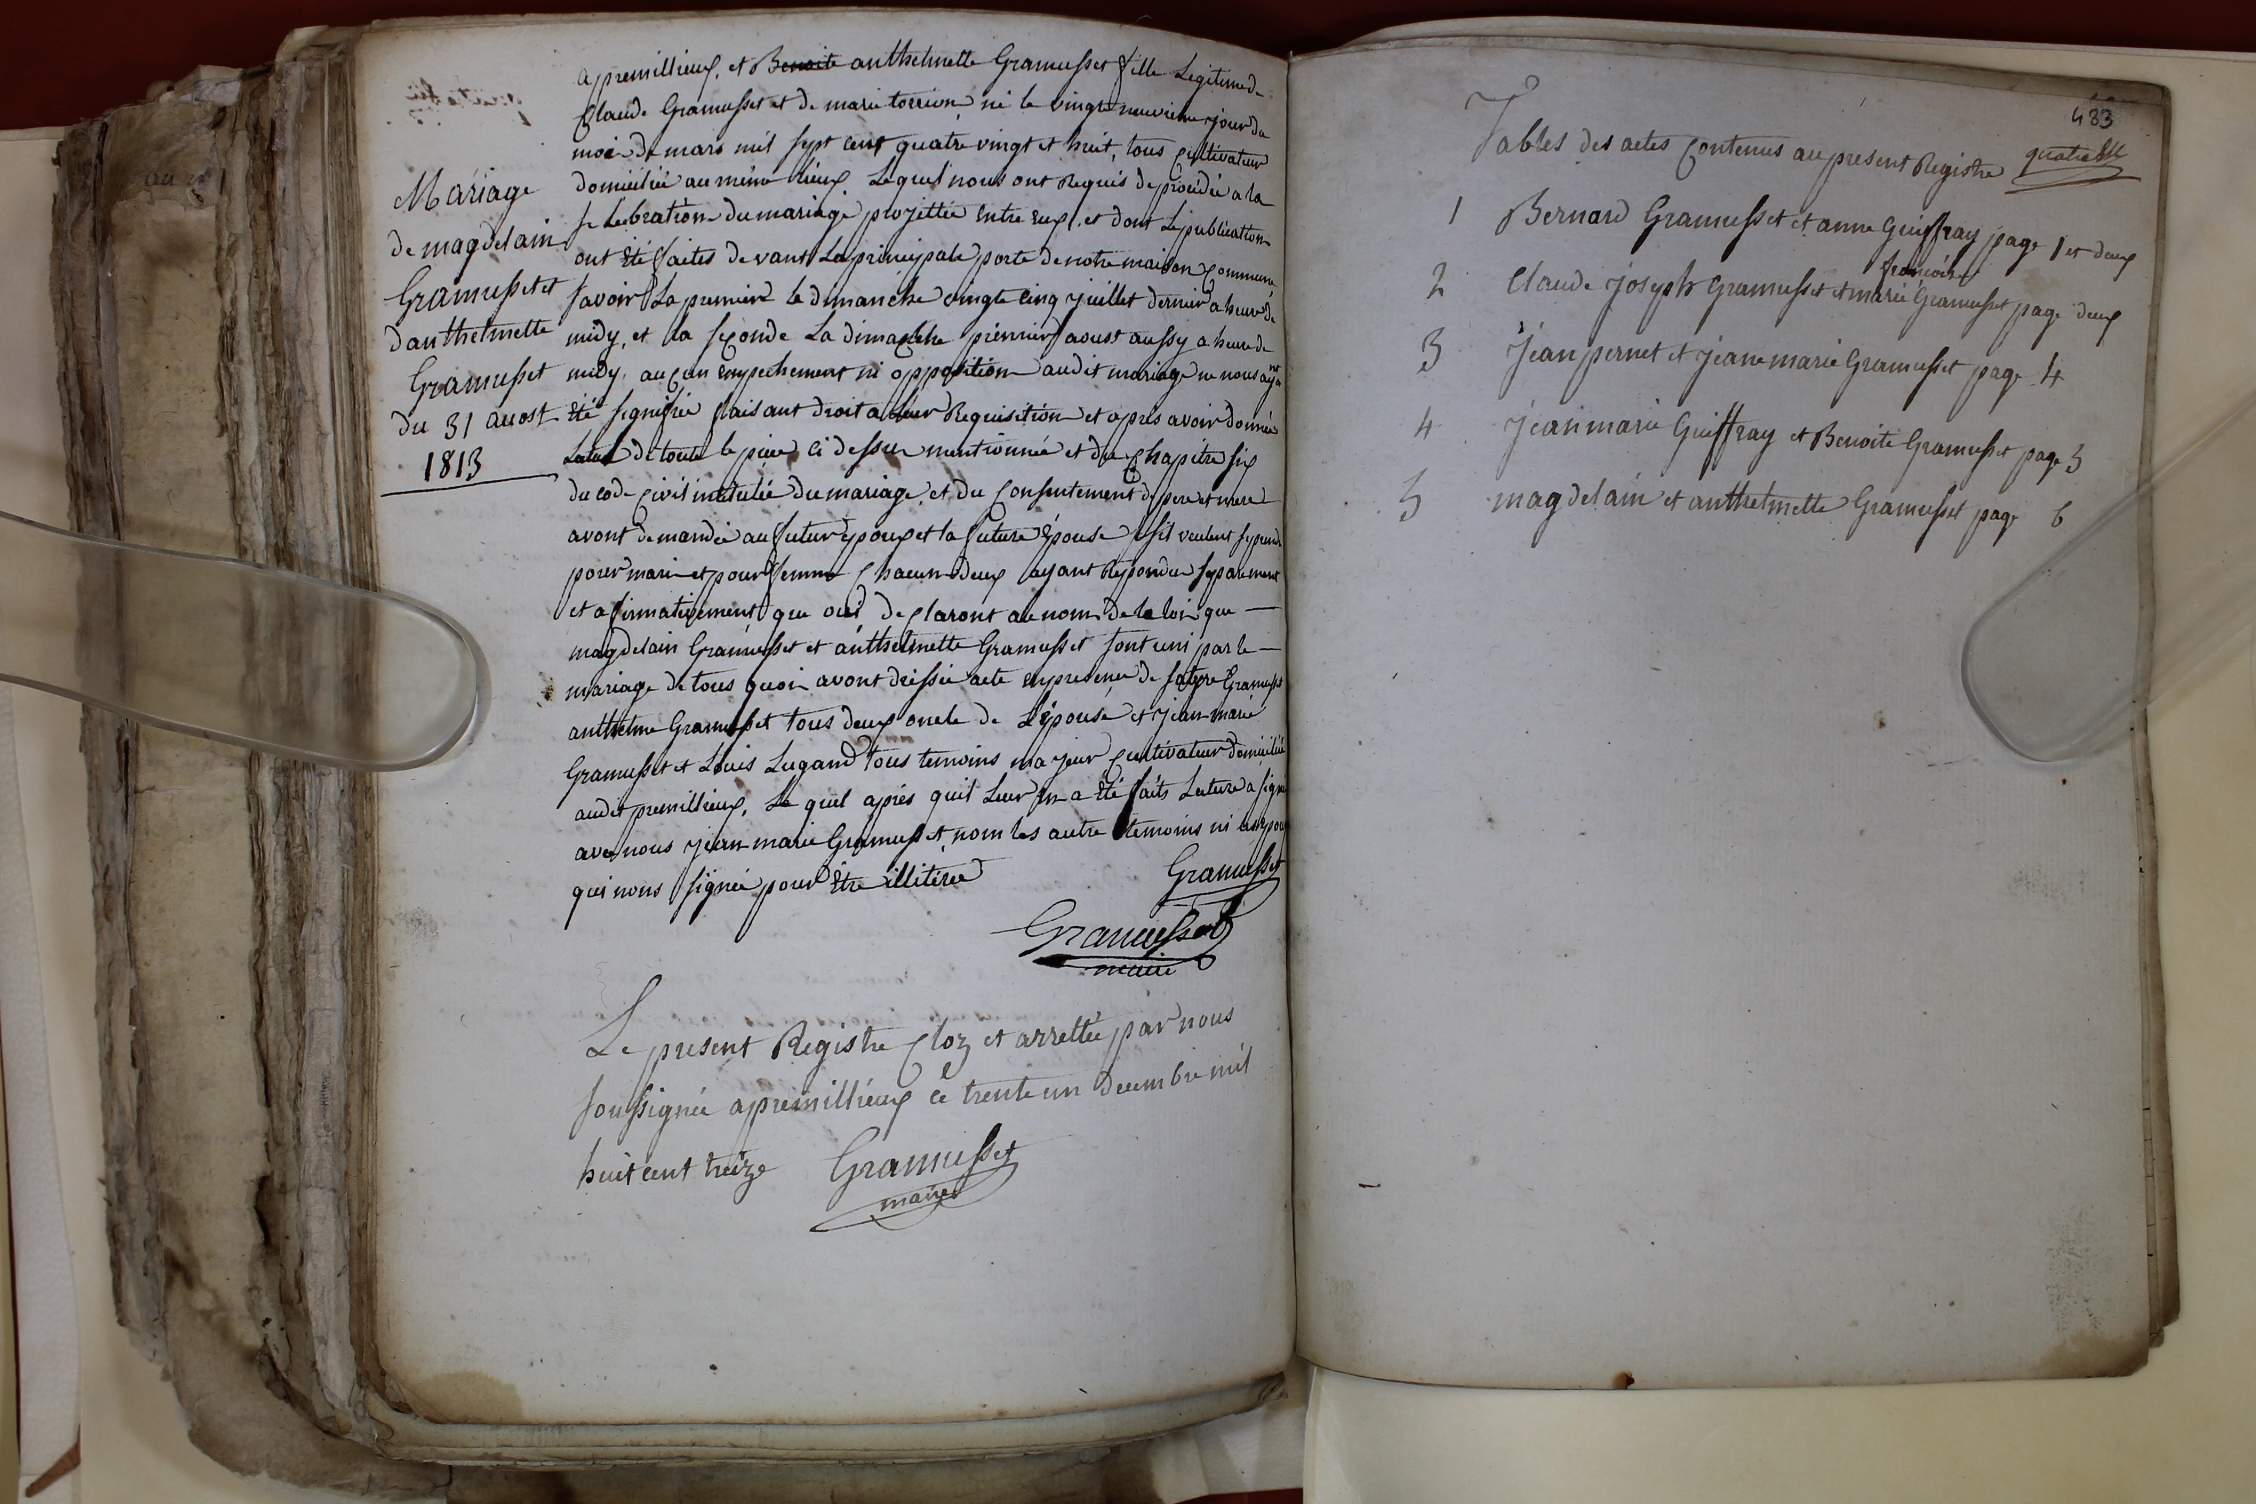 Mariage
de magdelain
Gramusset et
danthelmette
Gramusset
du 31 auost
1813
a premillieux, et Benoite anthelmette Gramusset fille Legitime de
Claude Gramusset et de marie torrion né le vingt neuvieme jour du
mois de mars mil sept cent quatre vingt et huit, tous cultivateur
domicilié au même lieux Lequel nous ont Requis de procédée a la
selebration du mariage projettée entre eux, et dont Le publication
ont été faites devant La principale porte de notre maison commune
savoir La premiere le dimanche vingt cinq juillet dernier a heure de
midy, et la seconde La dimanche premier aoust aussy a heure de
midy, aucun empechement ni opposition audit mariage ne nous ayant
été signifiée faisant droit a leur Requisition et après avoir donnée
de toute le piece ci dessus mentionnée et du chapitre six
du code civil intitulée du mariage, et du Consentement de pere et mere
avont demandée au futur epoux et la future épouse sil veulent se prendre
pour mari et pour femme Chacun deux ayant Repondu separement
et afirmativement que oui declaront au nom de la loi que
magdelain Gramusset et anthelmette Gramusset sont uni par le
mariage de tous quoi avont dressée acte en presence de Gramusset
anthelme Gramusset tous deux oncle de Lépouse et jean marie
Gramusset et Louis Lugand tous temoins majeur cultivateur domicilié
audit premillieux, Le quel après quil Leur en a été faits Lecture a signé
avec nous jean marie Gramusset, nom les autre temoins ni
qui nons signée pour être illitérée
Gramusset
Gramusset
maire
Le present Registre Cloz et arrettée par nous
soussignée a premillieux ce trente un decembre mil
huit cent treize Gramusset
maire
483
Tables des actes Contenus au present Registre
1 Bernard Gramusset et anne Guiffray page 1 et deux
françoise
2 Claude joseph Gramusset et marie Gramusset page deux
3 jean pernet et jeane marie Gramusset page 4
4 jean marie Guiffray et Benoite Gramusset page 5
5 magdelain et anthelmette Gramusset page 6